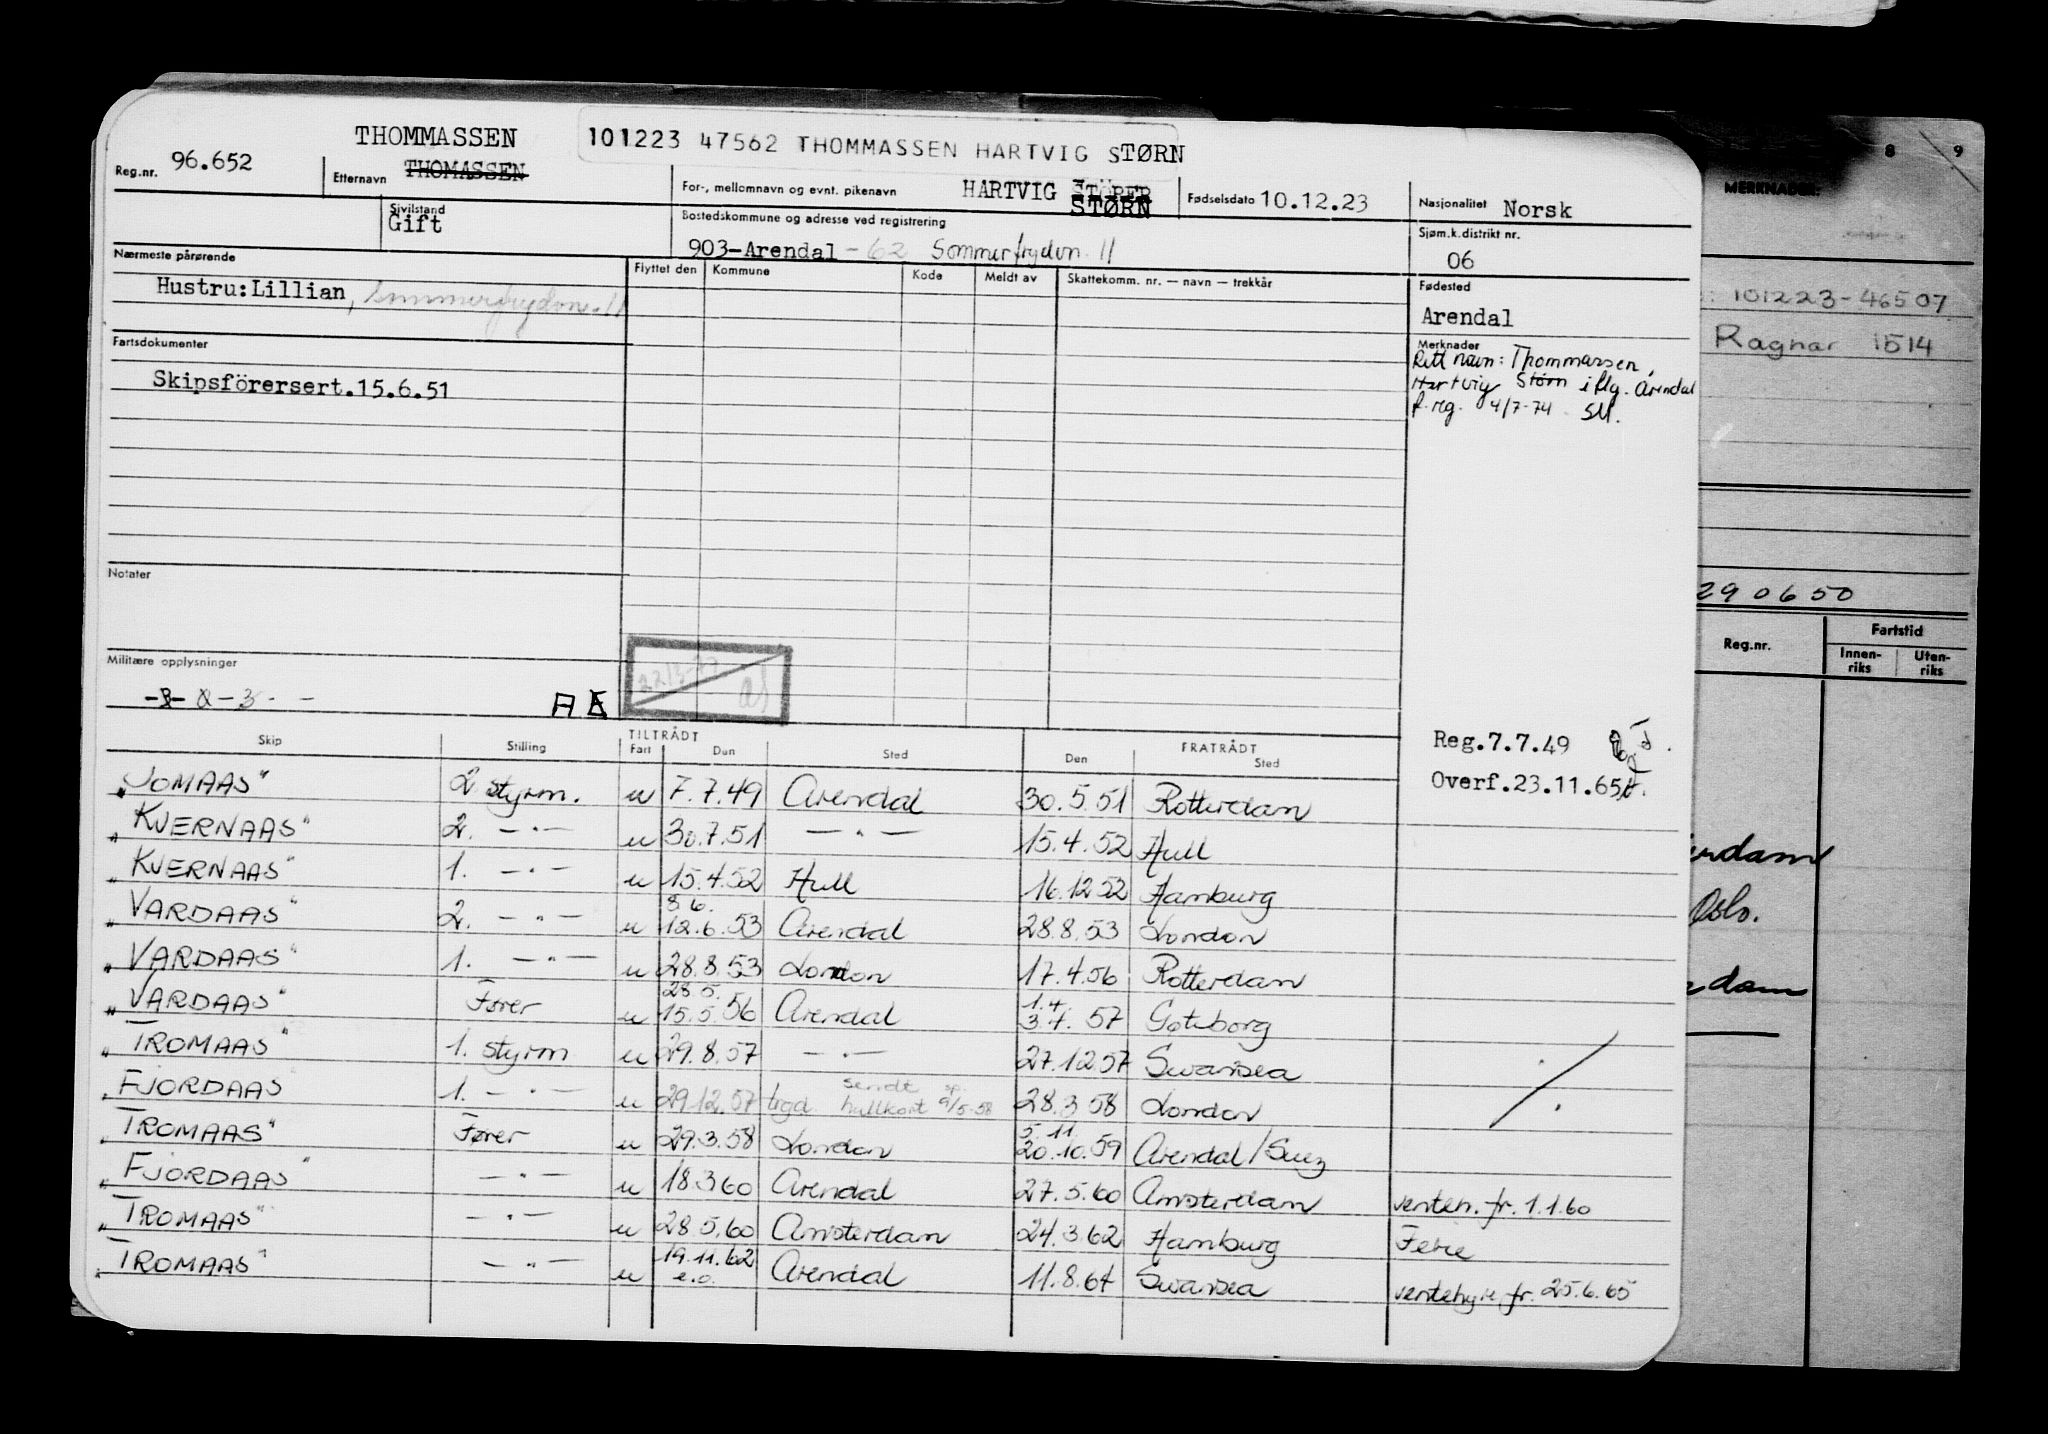 THOMMASSEN
101223 47562 THOMMASSEN HARTVIG STØRN
Reg.nr. 96.652 Etternavn THOMASSEN For-, mellomnavn og evnt. pikenavn HARTVIG STÖRER STØRN Fødselsdato 10.12.23 Nasjonalitet Norsk
Sivilstand Gift
Bostedskommune og adresse ved registrering
903-Arendal - 62 Sommerfrydvn. 11
Sjøm.k.distrikt nr.
06
Nærmeste pårørende
Hustru:Lillian,
Flyttet den Kommune Kode Meldt av Skattekomm. nr. — navn — trekkår
Fødested
Arendal
Fartsdokumenter
Skipsförersert.15.6.51
Merknader
Rett navn: Thommassen,
Hartvig Størn iflg. Arendal
f.reg. 4/7-74 SM.
Notater
Militære opplysninger
Reg.7.7.49
Overf.23.11.65
Skip Stilling TILTRÅDT Fart Den Sted FRATRÅDT Den Sted
"JOMAAS" 2 styrm. u 7.7.49 Arendal 30.5.51 Rotterdam
"KVERNAAS" 2. —"— u 30.7.51 —"— 15.4.52 Hull
"KVERNAAS" 1. —"— u 15.4.52 Hull 16.12.52 Hamburg
"VARDAAS" 2. —"— u 8 6. 12.6.53 Arendal 28.8.53 London
"VARDAAS" 1. —"— u 28.8.53 London 17.4.56 Rotterdam
"VARDAAS" Fører u 28.5. 15.5.56 Arendal 1.4. 3.4.57 Gøteborg
"TROMAAS" 1. styrm u 29.8.57 —"— 27.12.57 Swansea
"FJORDAAS 1. —"— u 29.12.57 sendt hullkort sp. 9/5-58 28.3.58 London
"TROMAAS" Fører u 29.3.58 London 5.11. 20.10.59 Arendal/Suez
"FJORDAAS" —"— u 18.3.60 Arendal 27.5.60 Amsterdam venteh. fr. 1.1.60
"TROMAAS" —"— u 28.5.60 Amsterdam 24.3.62 Hamburg Ferie
"TROMAAS" —"— u 19.11.62 e.o. Arendal 11.8.64 Swansea ventehyre fr. 25.6.65
8 9
MERKNADER:
101223-46507
Ragnar 1514
290650
Reg.nr. Fartstid
Innen-riks Uten-riks
Oslo.